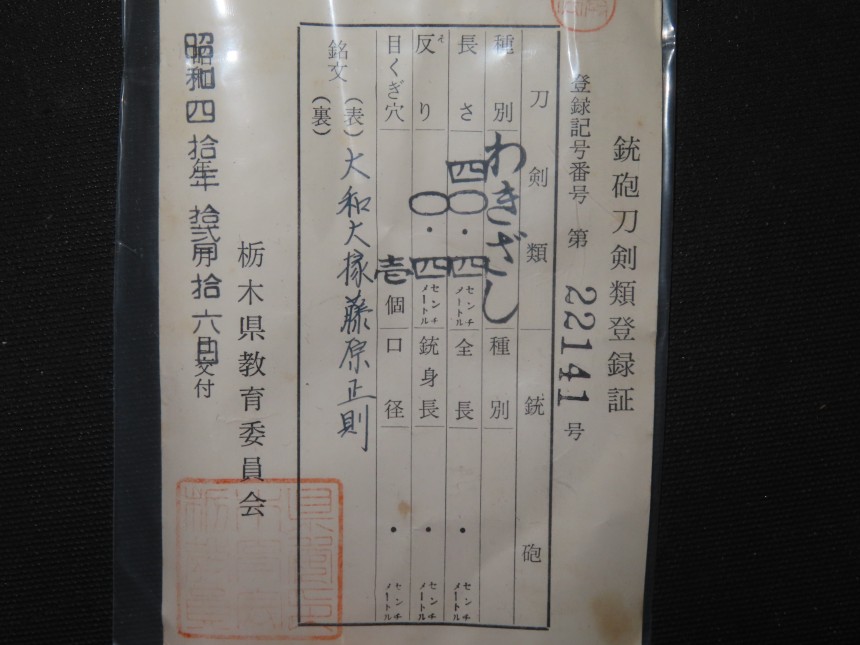 銃砲刀剣類登録証
登録記号番号 第 22141 号
刀剣類 銃砲
種別 わきざし 種別
長さ 四〇.四 センチメートル 全長 . センチメートル
反り そ 〇.四 センチメートル 銃身長 . センチメートル
目くぎ穴 壱個 口径 . センチメートル
銘文 (表) 大和大掾藤原正則
(裏)
昭和四拾年拾弐月拾六日交付
栃木県教育委員会